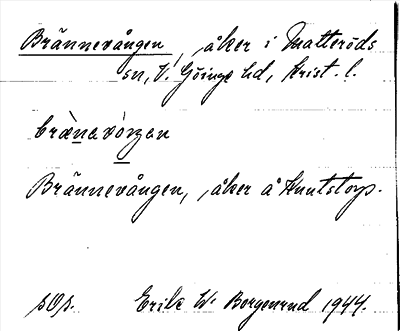 Brännevången, åker i Matteröds
sn, V. Göinge hd, Krist. l.
bræ̀navòŋan
Brännevången, åker å Knutstorp.
sOs. Erik W. Borgenrud 1944.